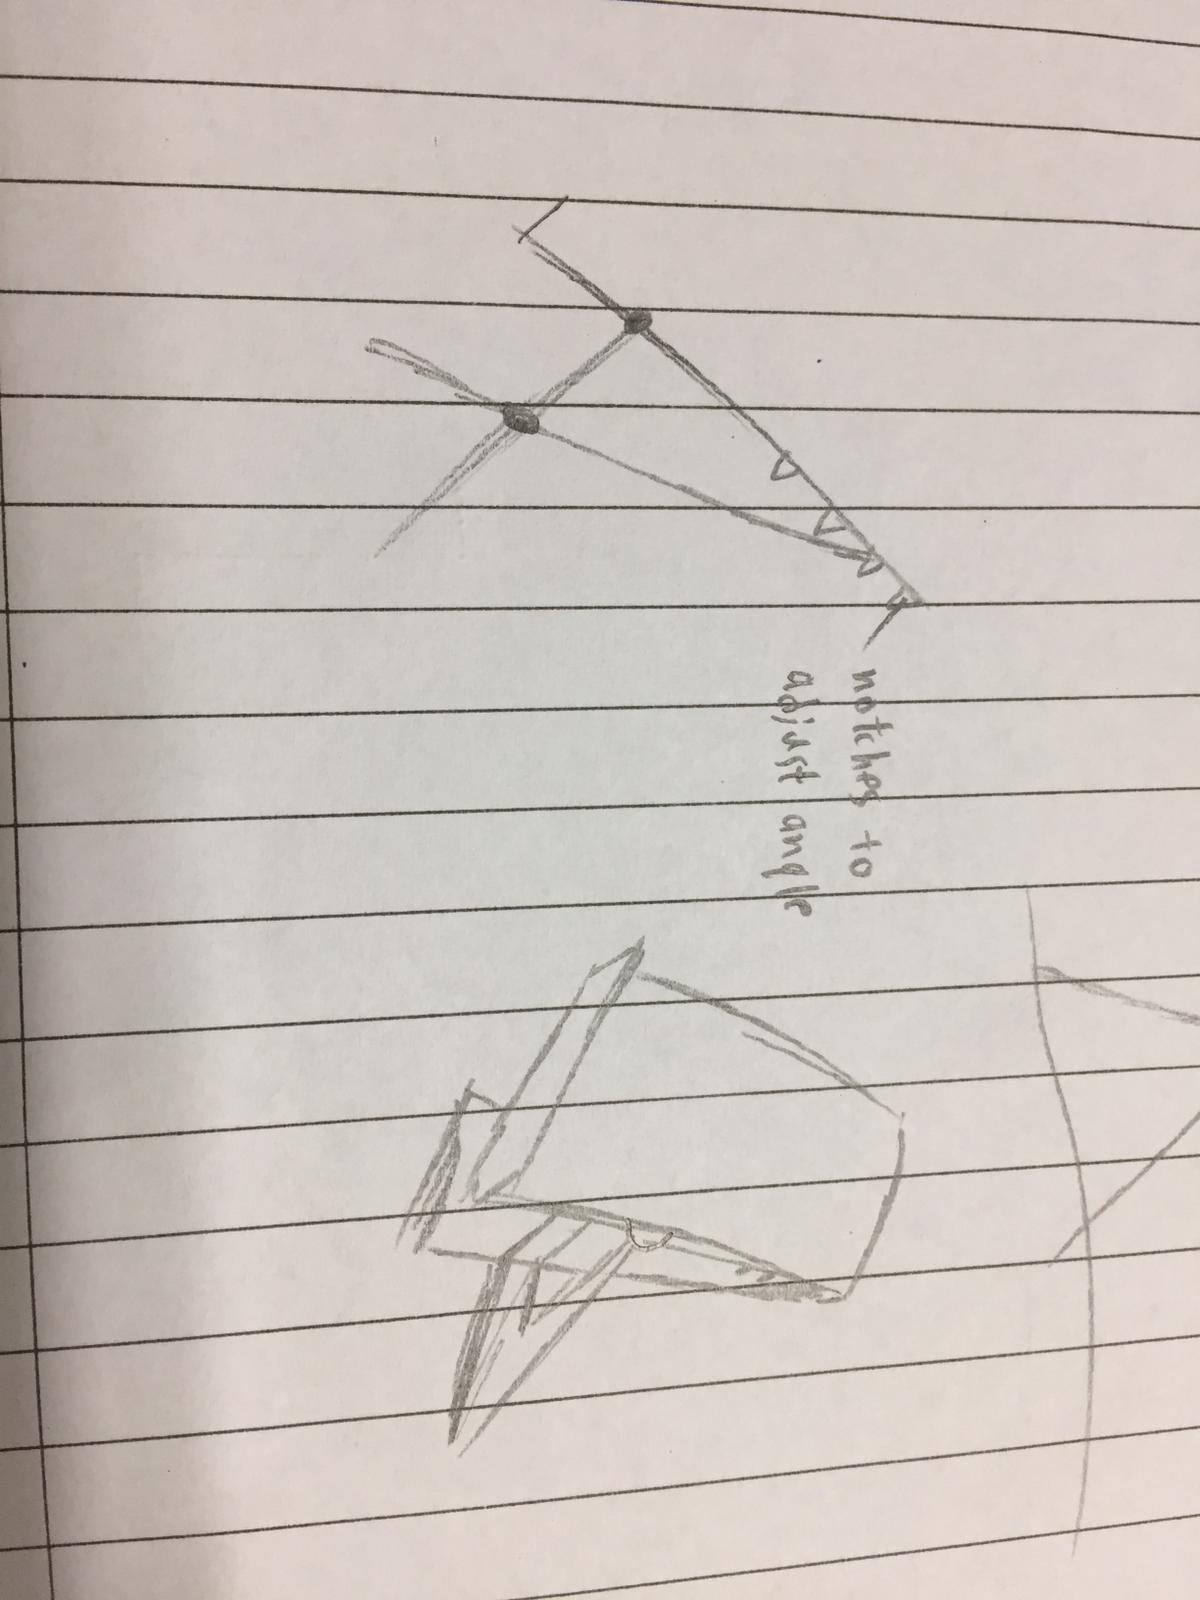 notches to
adjust angle